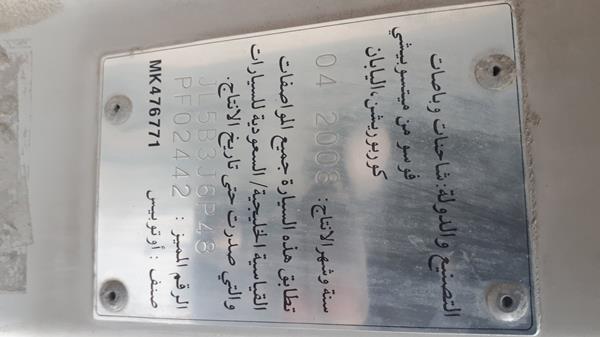 التصنيع والدولة: شاحنات وباصات
فوسو من ميتسوبيشي
كوربوريشن، اليابان
سنة وشهر الانتاج: 04 2008
تطابق هذه السيارة جميع المواصفات
القياسية الخليجية/السعودية للسيارات
والتي صدرت حتى تاريخ الانتاج.
الرقم المميز : JL5B3J6P48
PF02442
صنف : أوتوبيس
MK476771